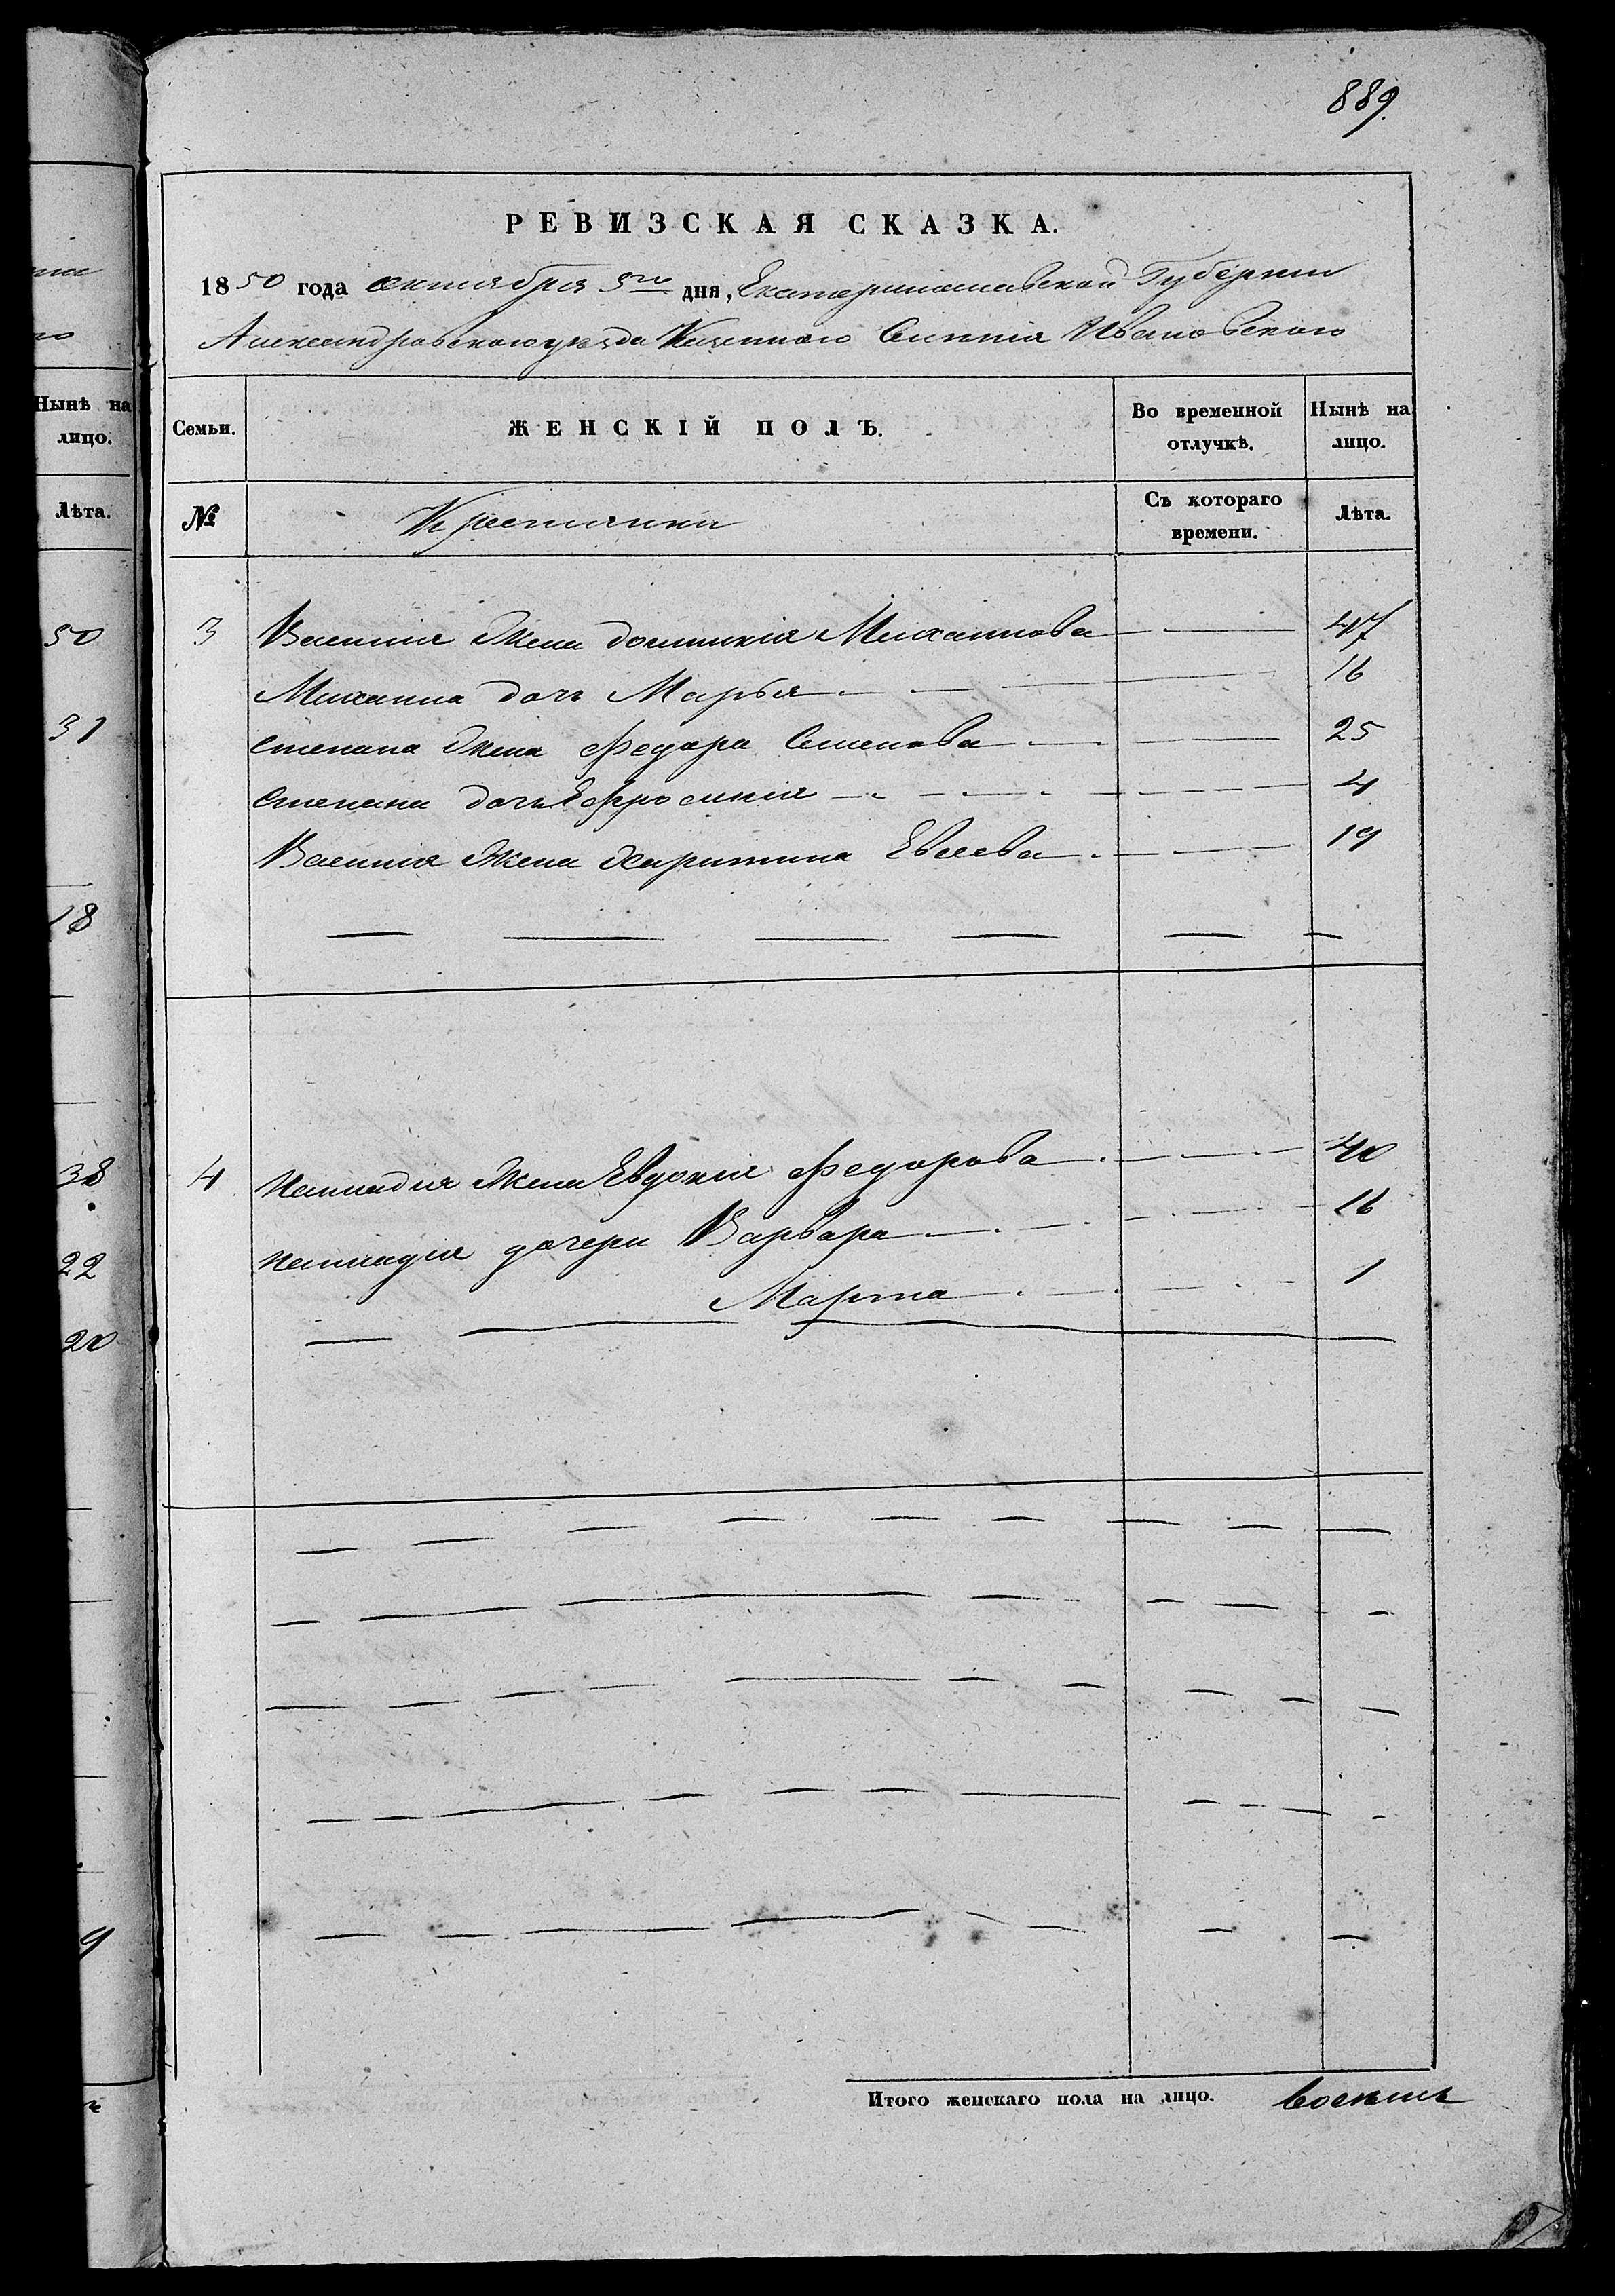 889.
РЕВИЗСКАЯ СКАЗКА.
1850 года октября 5го дня, Екатеринославской Губернии
Александровского уѣзда Казенного Сѣлѣнія Ивановского
Семьи.
ЖЕНСКІЙ ПОЛЪ.
Во временной отлучкѣ.
Нынѣ на лицо.
№
Крестьянки
Съ котораго времени.
Лѣта.
3 Василія Жена Домникія Михайлова 47
Михаила дочь Марья 16
Степана Жена Федора Семенова 25
Степана дочь Ефросинія 4
Василія Жена Харитина Евсеева 19
4 Жена Евдокія Федорова 40
дочери Варвара 16
Марта 1
Итого женскаго пола на лицо. восемь
Нынѣ на
лицо.
Лѣта.
50
31
18
38
22
20
9